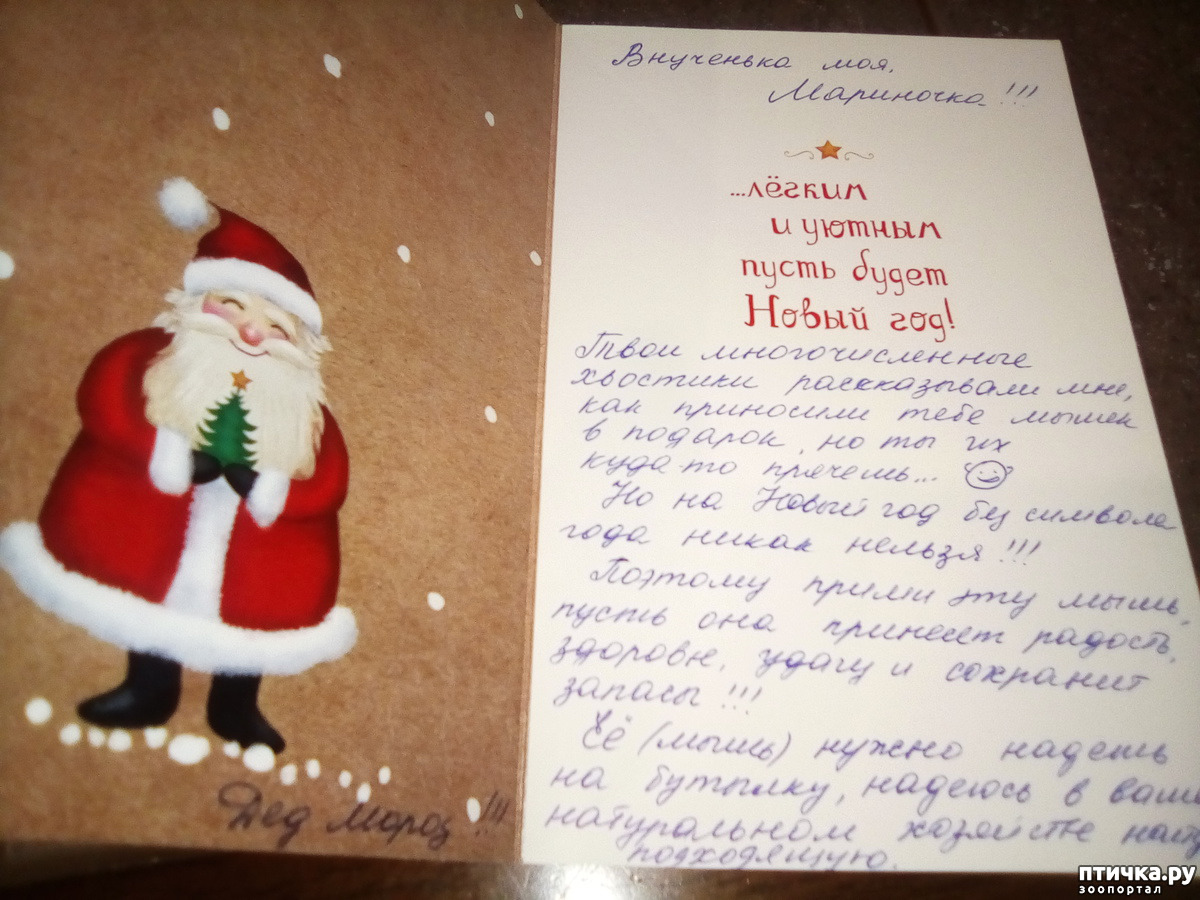 Внученька моя,
Мариночка!!!
...лёгким
и уютным
пусть будет
Новый год!
Твои многочисленные
хвостики рассказывали мне,
как приносили тебе мышек
в подарок, но ты их
куда-то прячешь...
Но на Новый год без символа
года никак нельзя!!!
Поэтому прими эту мышь,
пусть она принесет радость,
здоровье, удачу и сохранит
запасы!!!
Её (мышь) нужно надеть
на бутылку, надеюсь в
натуральном хозяйстве
подходящую.
Дед Мороз!!!
птичка.ру
зоопортал